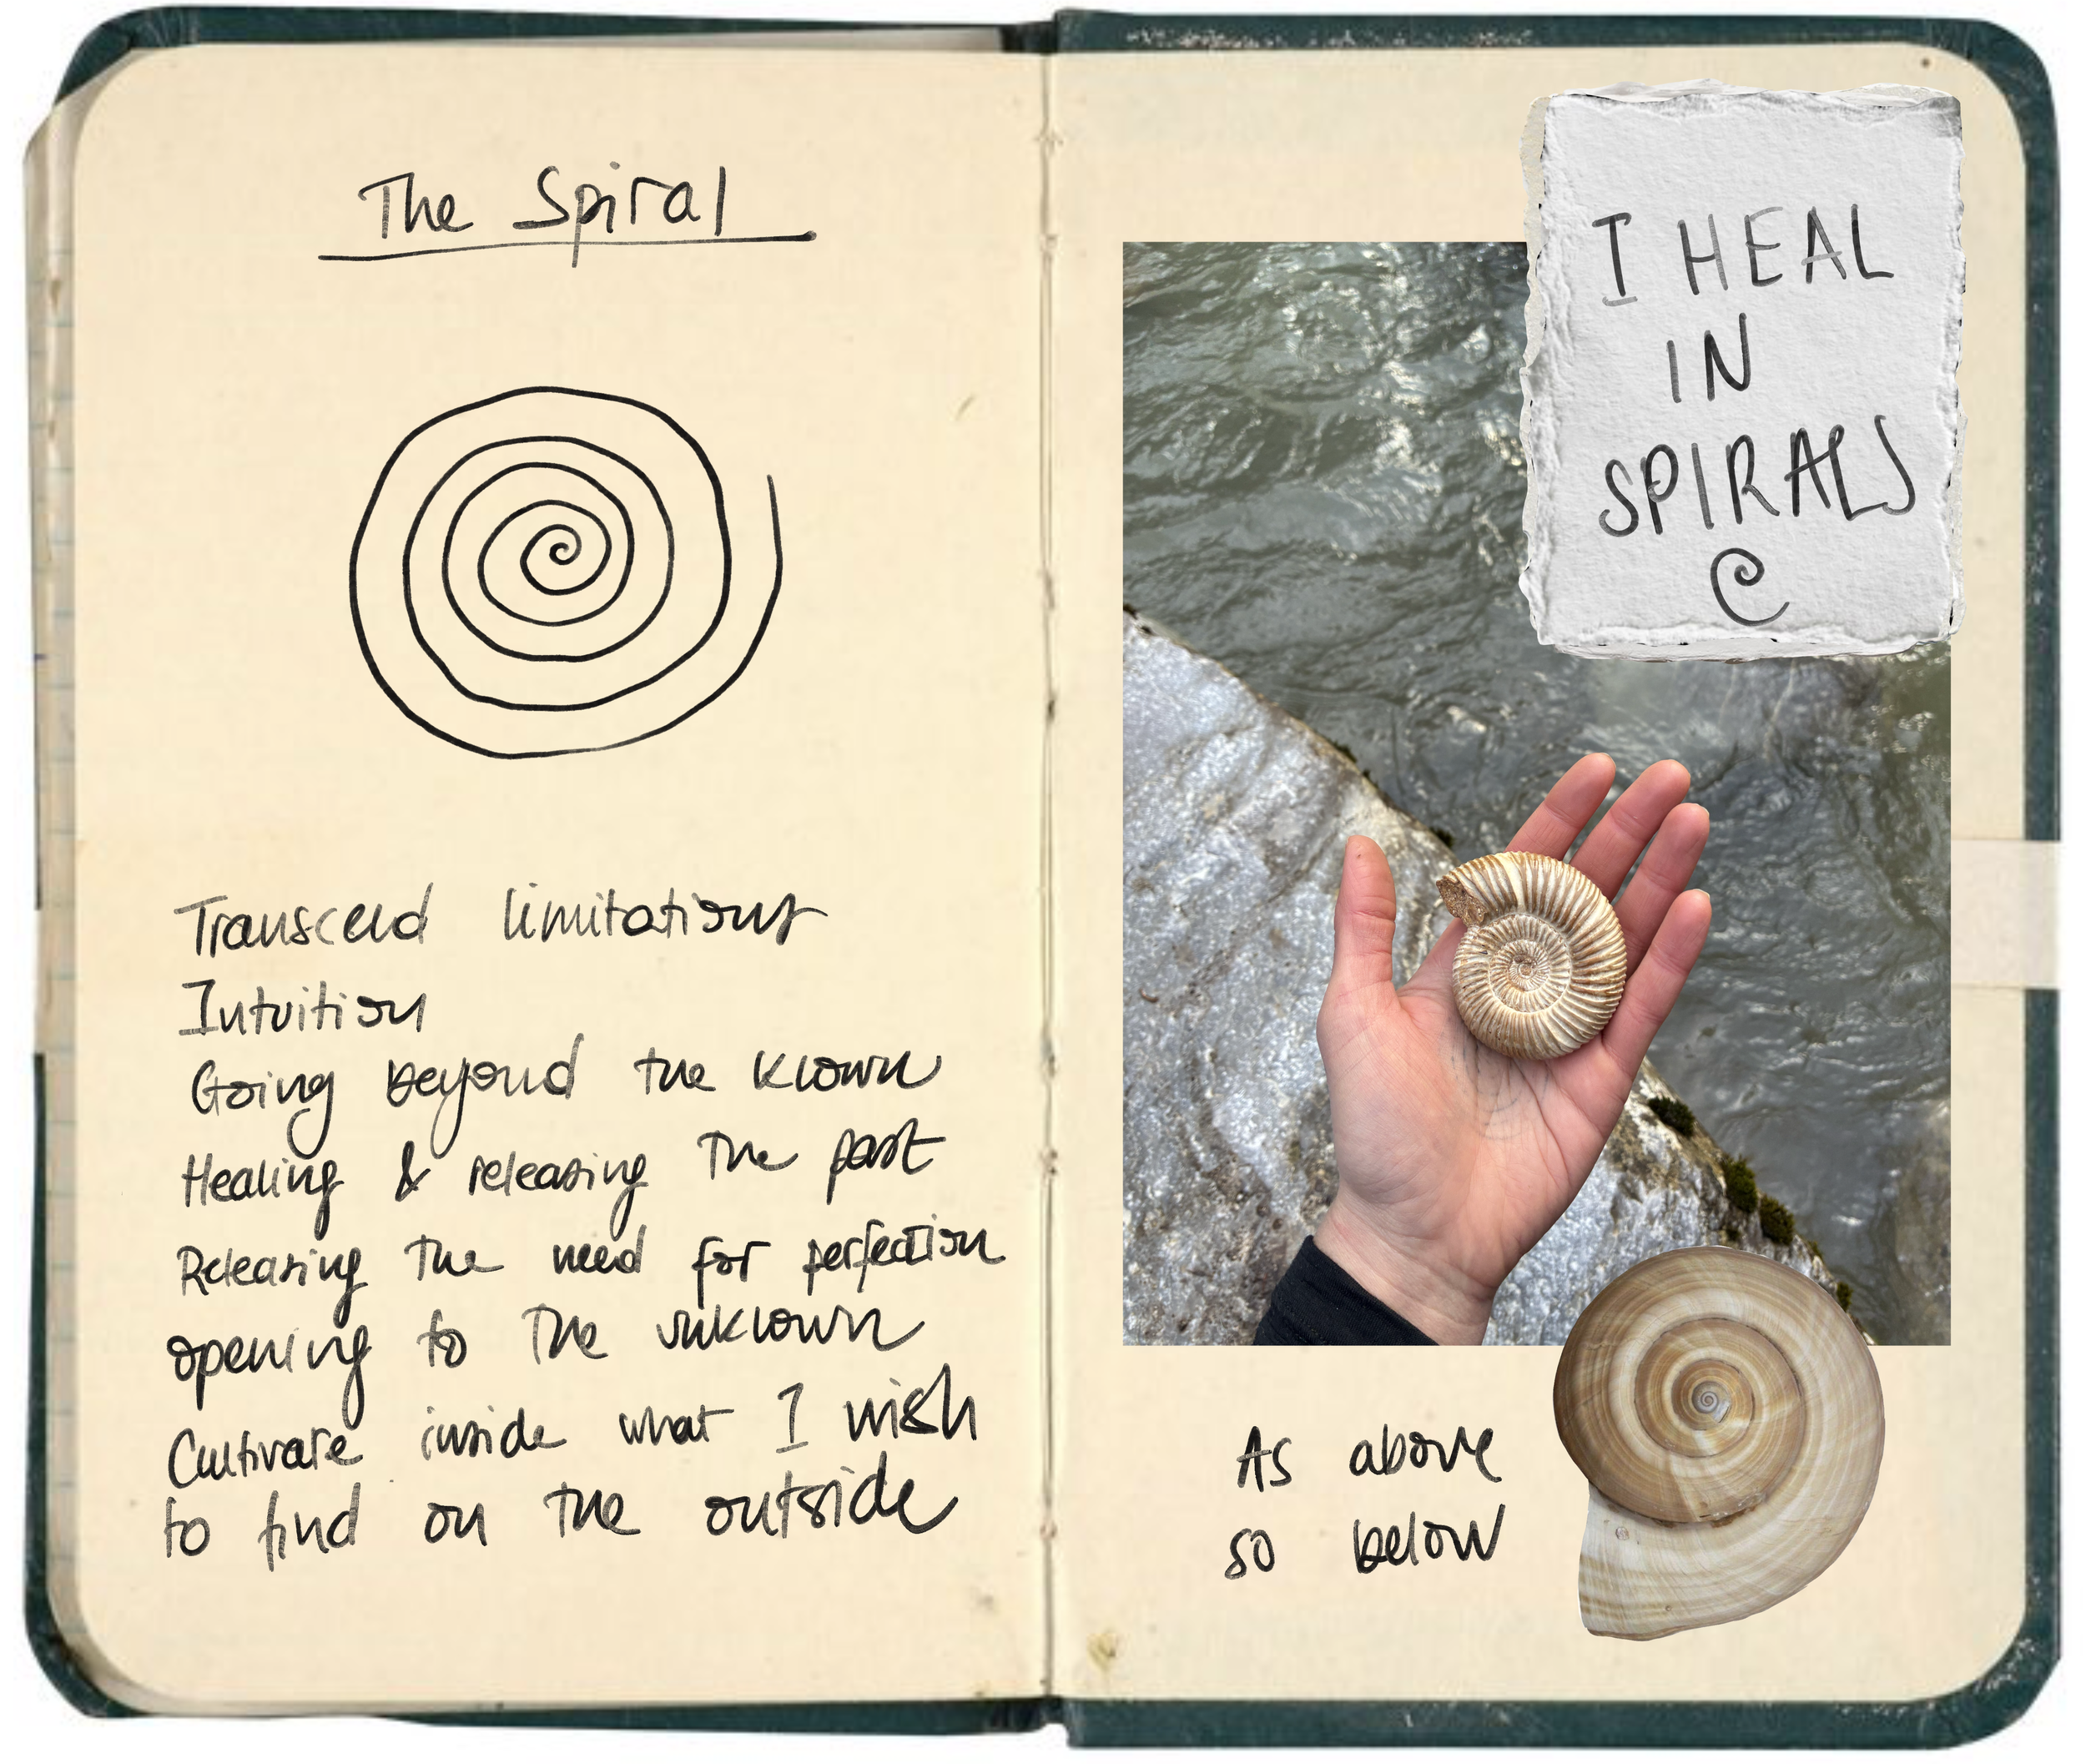 The Spiral
Transcend limitations
Intuition
Going beyond the known
Healing & releasing the past
Releasing the need for perfection
opening to the unknown
Cultivate inside what I wish
to find on the outside
I HEAL
IN
SPIRALS
As above
so below